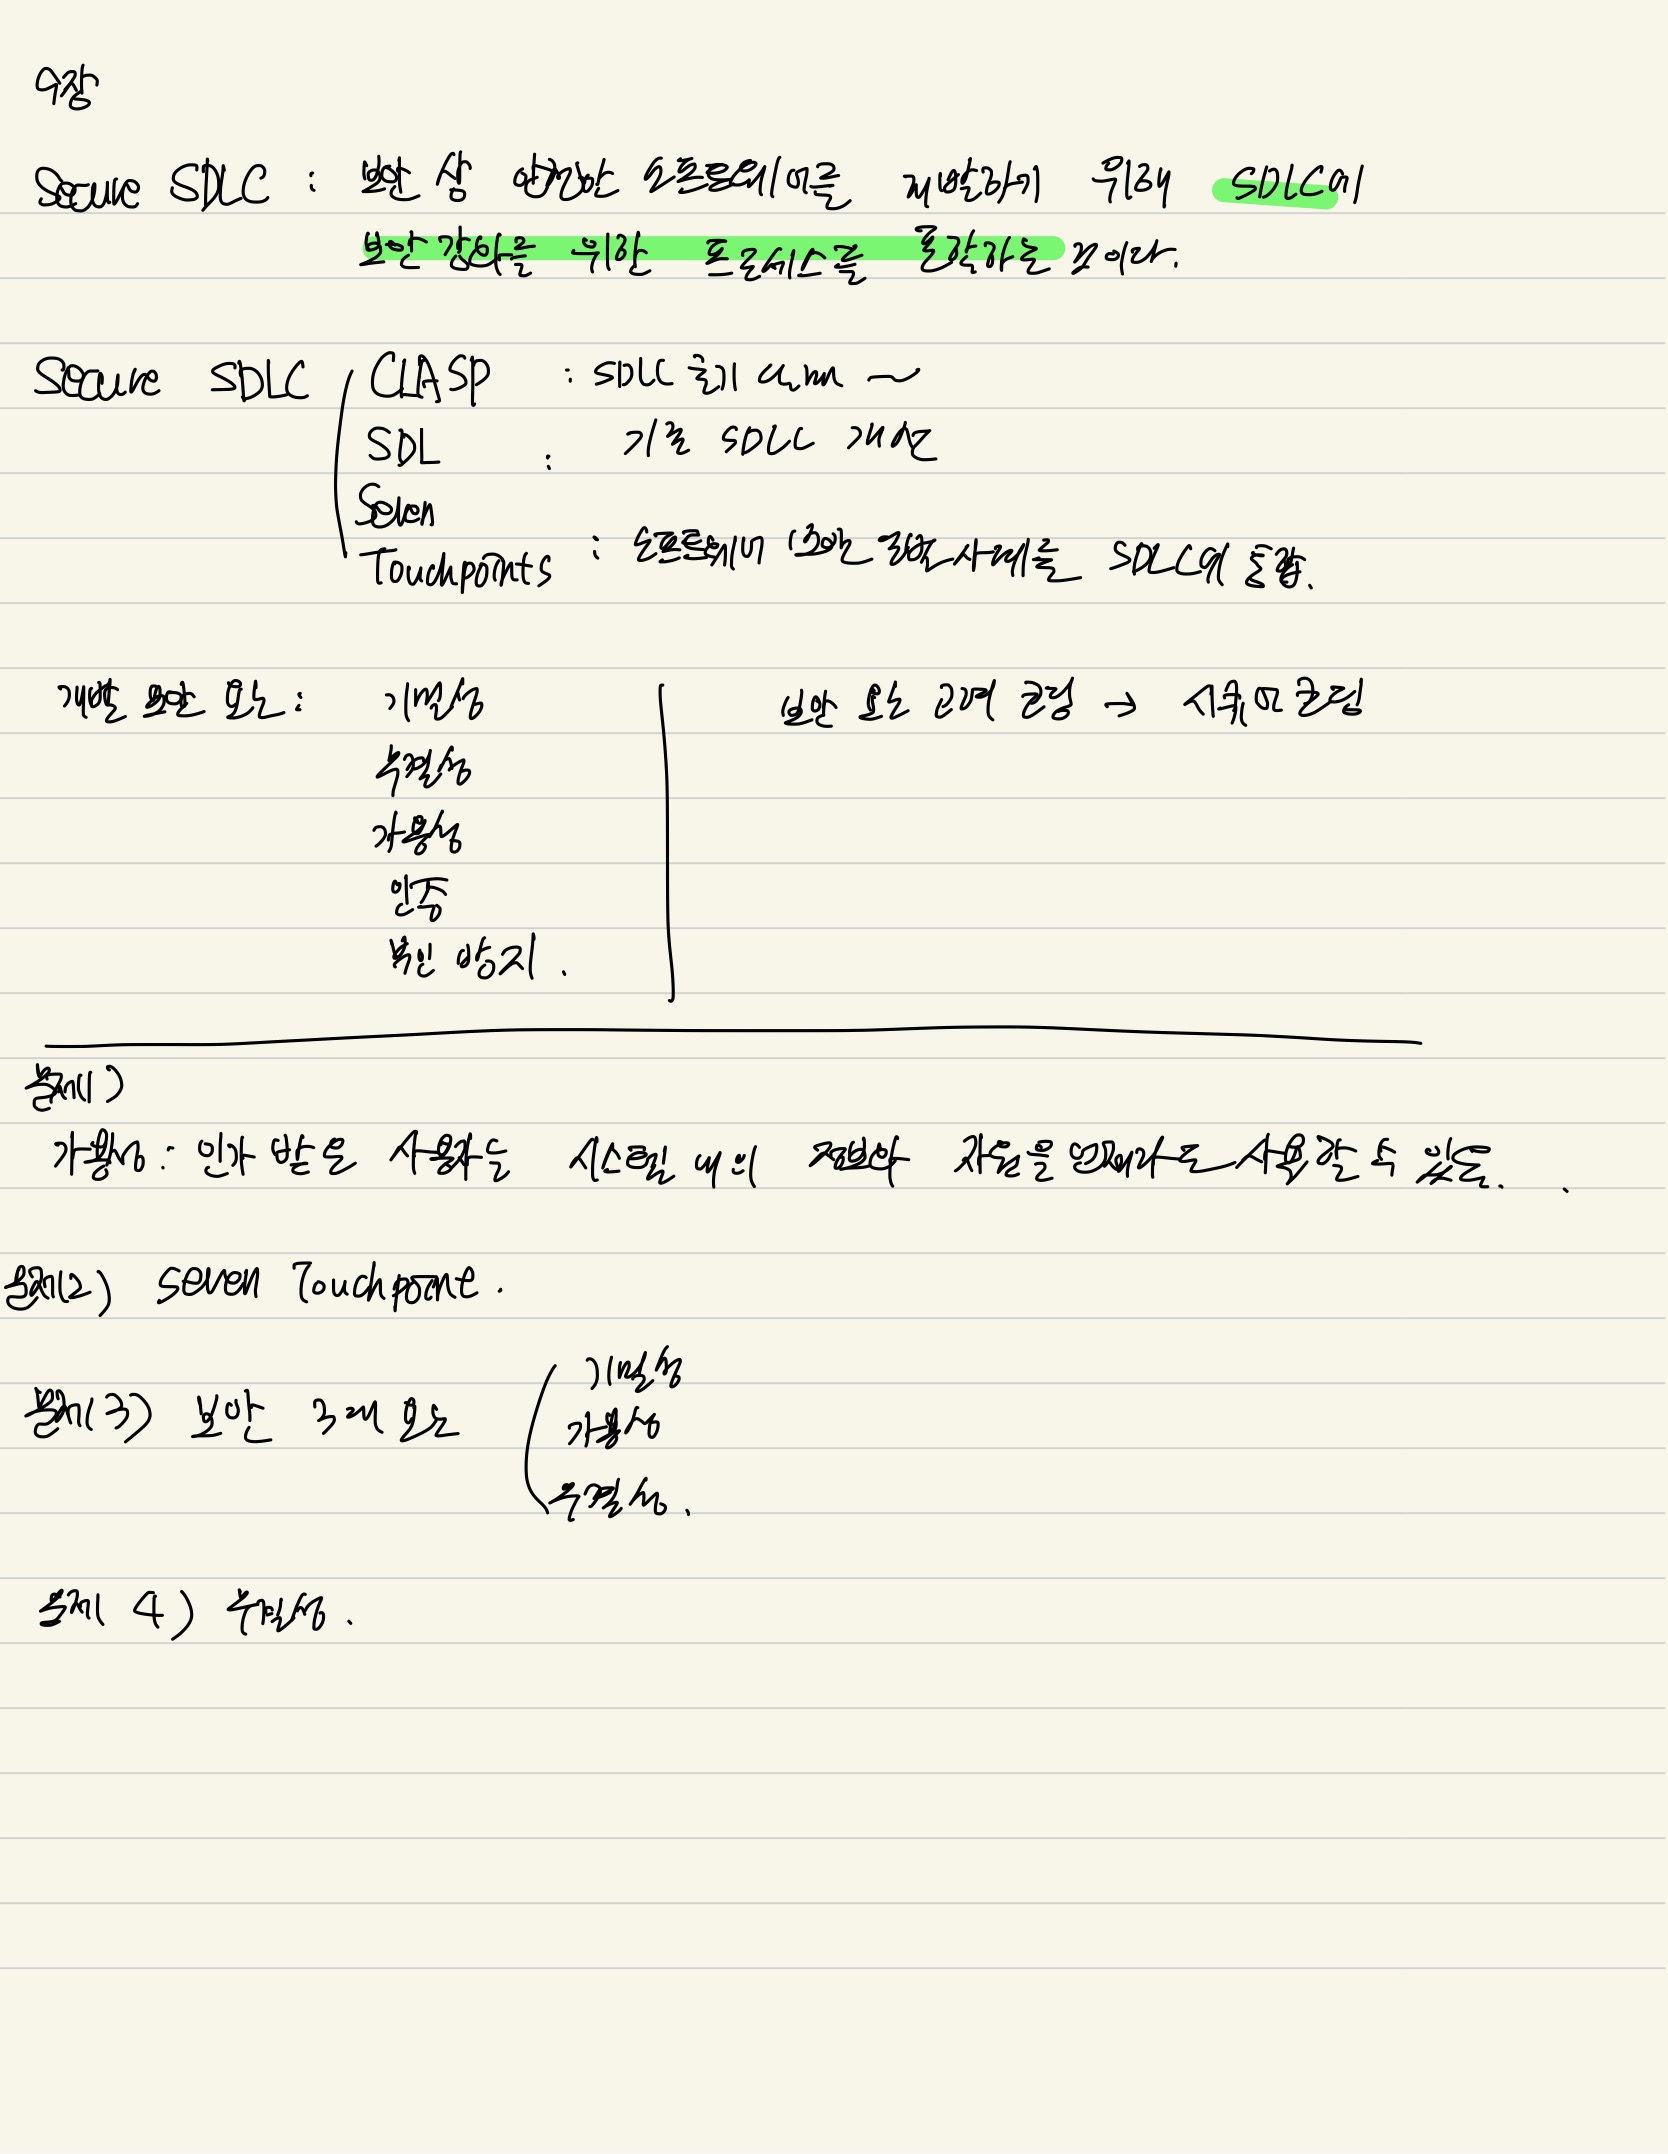 9장
Secure SDLC : 보안 상 안전한 소프트웨어를 개발하기 위해 SDLC에
보안 강화를 위한 프로세스를 포함하는 것이다.
Secure SDLC CLASP : SDLC 초기 단계 ~
SDL : 기존 SDLC 개선
Seven
Touchpoints : 소프트웨어 보안 모범사례를 SDLC에 통합.
개발 보안 요소 : 기밀성
보안 요소 고려 코딩 → 시큐어 코딩
무결성
가용성
인증
부인 방지.
문제1)
가용성 : 인가 받은 사용자는 시스템 내의 정보와 자원을 언제라도 사용할 수 있음.
문제2) Seven Touchpoint.
문제3) 보안 3대 요소 기밀성
가용성
무결성.
문제 4) 무결성.